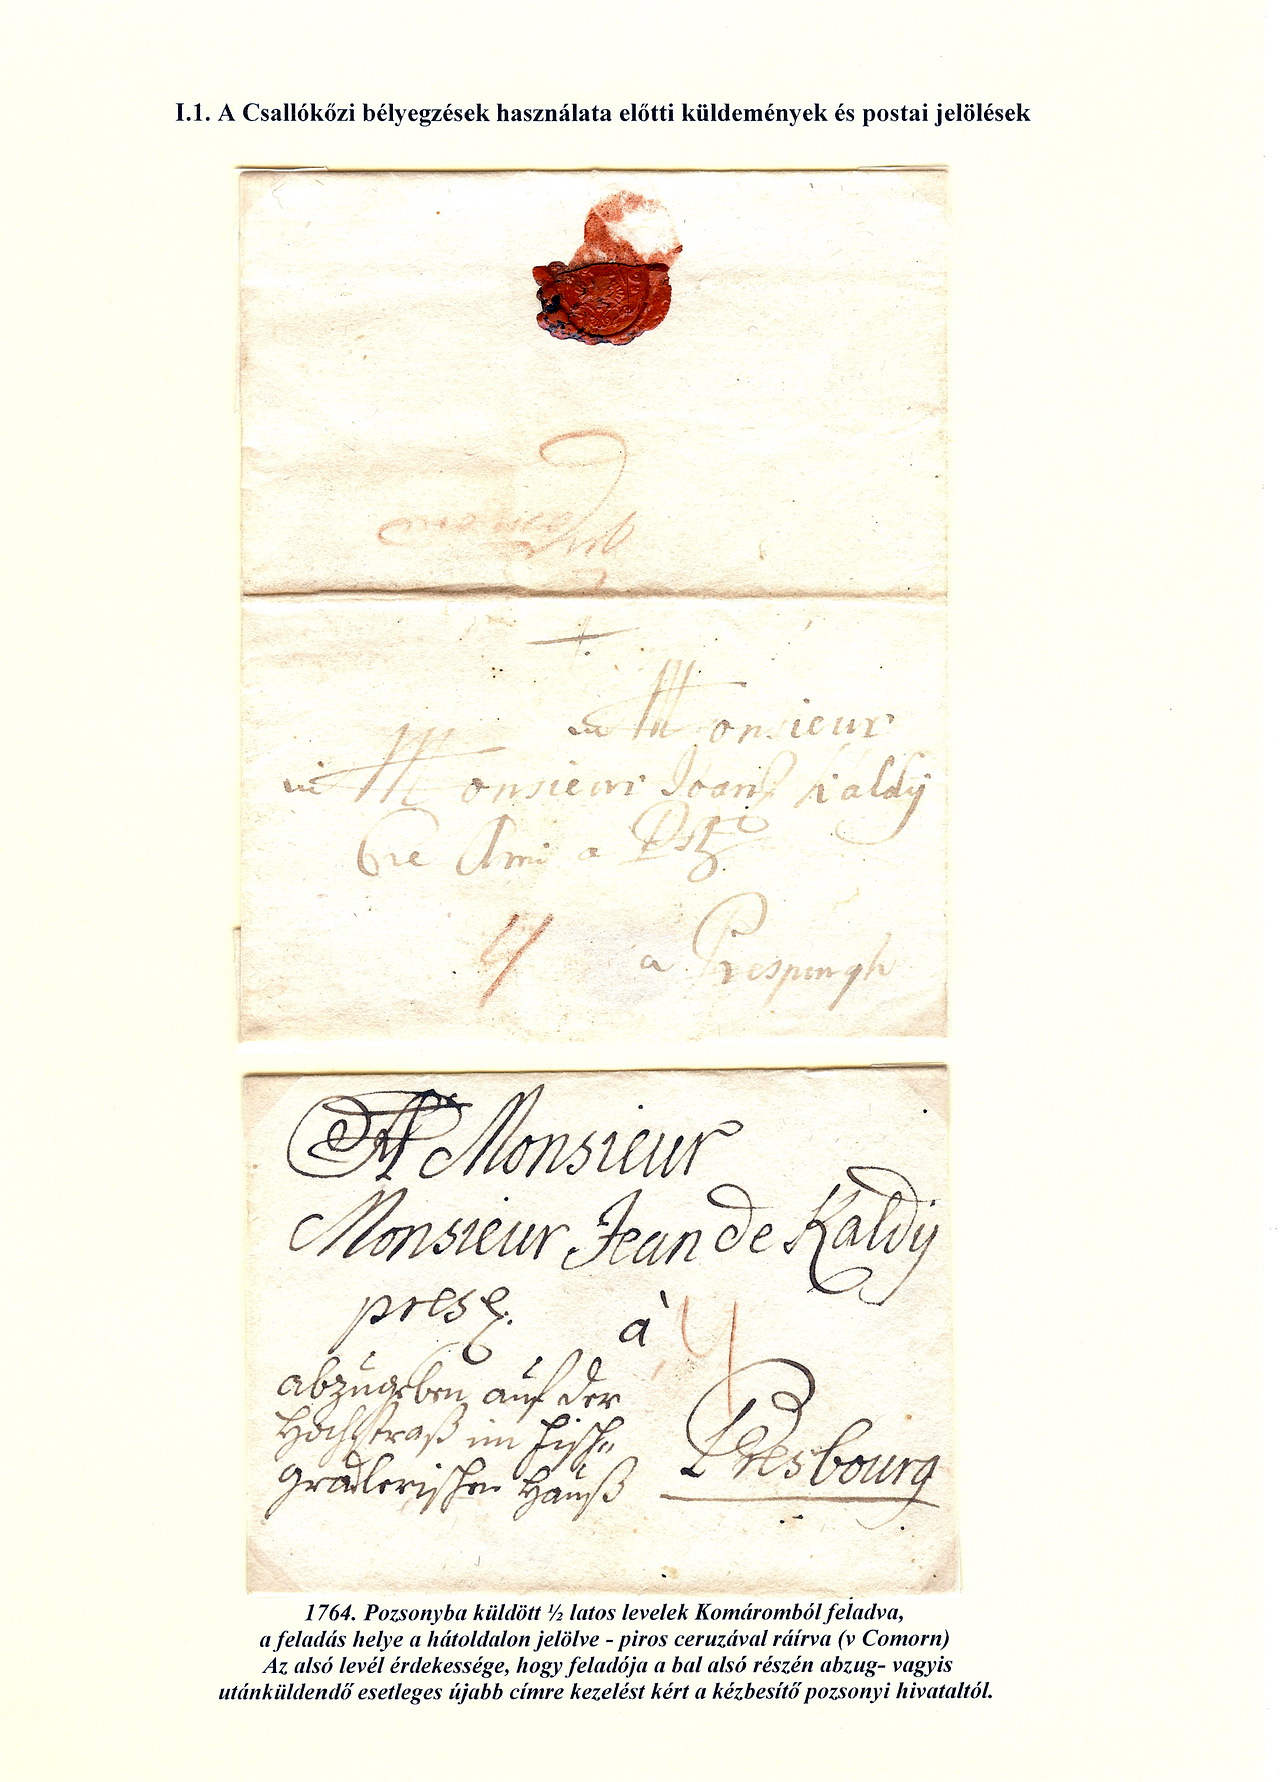 I.1. A Csallókőzi bélyegzések használata előtti küldemények és postai jelölések
Comorn
a Monsieur
Monsieur Joan Kaldÿ
Ami a
4
a Prespurgh
A Monsieur
Monsieur Jean de Kaldÿ
pres
à
4
abzugeben auf der
Hochstraß im Fisch=
gradlerischen Hauß
Presbourg
1764. Pozsonyba küldött ½ latos levelek Komáromból feladva,
a feladás helye a hátoldalon jelölve - piros ceruzával ráírva (v Comorn)
Az alsó levél érdekessége, hogy feladója a bal alsó részén abzug- vagyis
utánküldendő esetleges újabb címre kezelést kért a kézbesítő pozsonyi hivataltól.